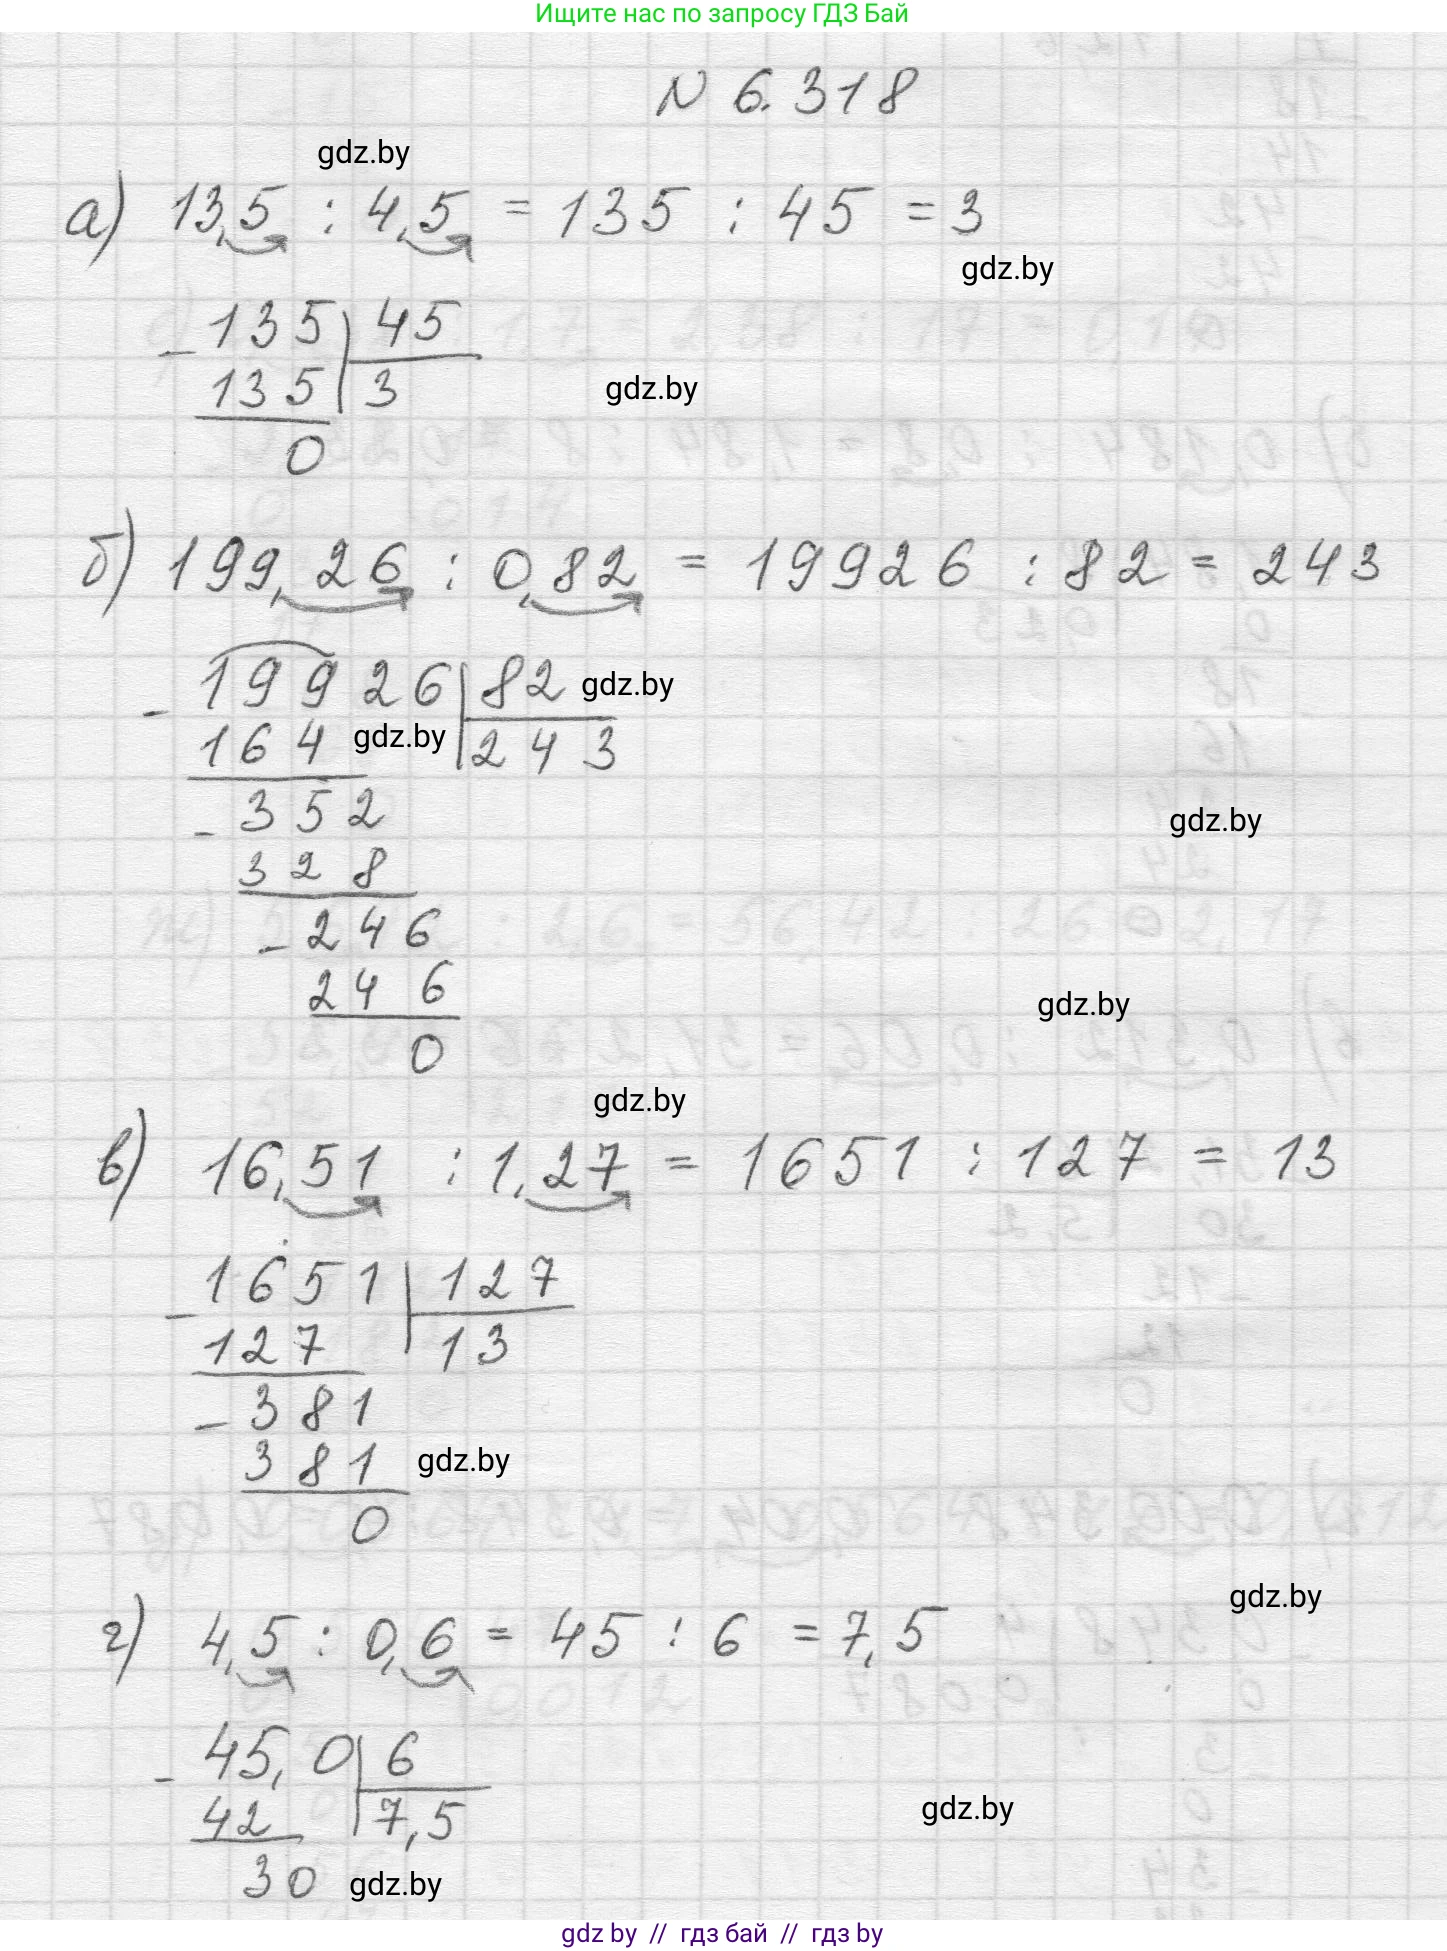 Ищите нас по запросу ГДЗ Бай
N 6.318
gdz.by
а) 13,5 : 4,5 = 135 : 45 = 3
gdz.by
- 135 | 45
135 | 3
gdz.by
0
б) 199,26 : 0,82 = 19926 : 82 = 243
- 19926 | 82
gdz.by
164 | 243
gdz.by
- 352
gdz.by
328
- 246
246
gdz.by
0
gdz.by
в) 16,51 : 1,27 = 1651 : 127 = 13
- 1651 | 127
127 | 13
- 381
381
gdz.by
0
gdz.by
г) 4,5 : 0,6 = 45 : 6 = 7,5
- 45,0 | 6
42 | 7,5
gdz.by
30
gdz.by
gdz by // гдз бай // гдз by